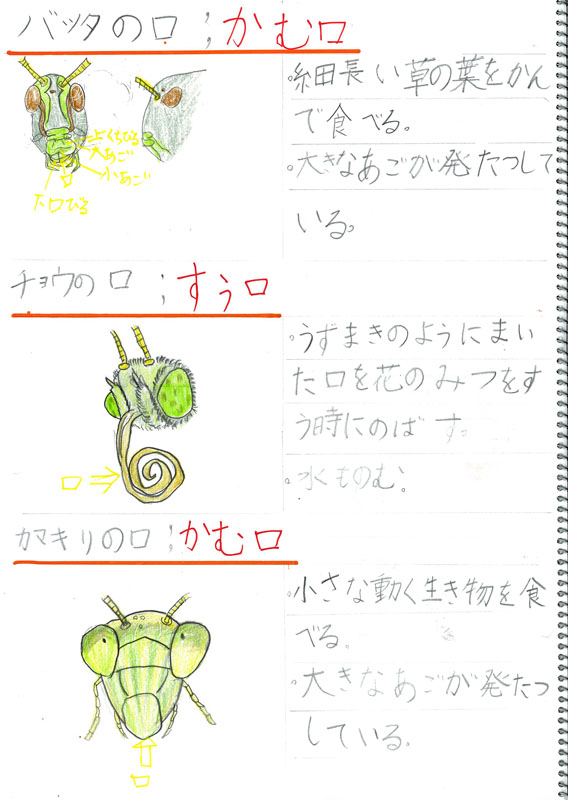 バッタの口;かむ口
・細長い草の葉をかん
で食べる。
・大きなあごが発たつして
いる。
上くちびる
大あご
小あご
下口びる
チョウの口;すう口
・うずまきのようにまい
た口を花のみつをす
う時にのばす。
・水ものむ。
口
カマキリの口;かむ口
・小さな動く生き物を食
べる。
・大きなあごが発たつ
している。
口